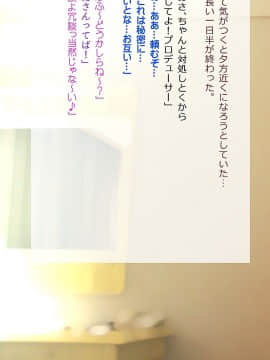 て気がつくと夕方近くになろうとしていた…
長い一日半が終わった。
さ、ちゃんと対処しとくから
してよ！プロデューサー」
…ああ…頼むぞ…
これは秘密に…
いとな…お互い…」
ふ～どうかしらね～？」
さんってば！」
よ冗談っ当然じゃな～い♪」